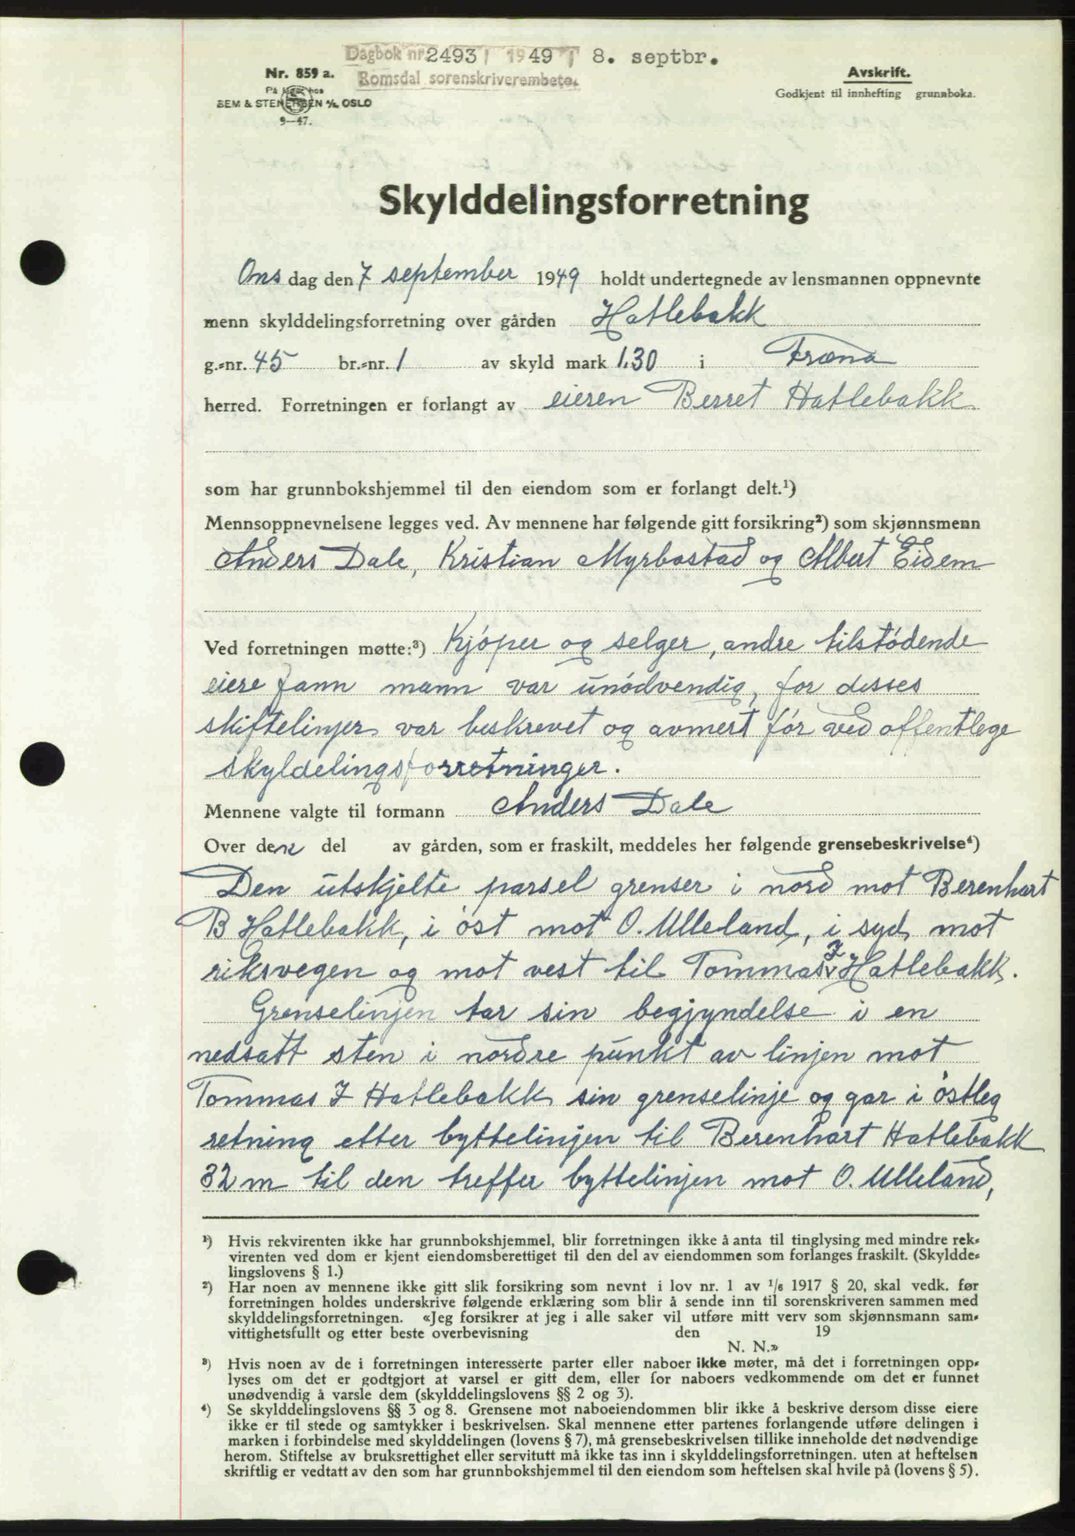 Dagbok nr 2493 / 1949 / 8. septbr.
Romsdal sorenskriverembete.
Nr. 859 a.
På lager hos
SEM & STENERSEN A/S, OSLO
9—47.
Avskrift.
Godkjent til innhefting grunnboka.
Skylddelingsforretning
Onsdag den 7 september 1949 holdt undertegnede av lensmannen oppnevnte
menn skylddelingsforretning over gården Hatlebakk
g.=nr. 45 br.=nr. 1 av skyld mark 1.30 i Fræna
herred. Forretningen er forlangt av eieren Berret Hatlebakk
som har grunnbokshjemmel til den eiendom som er forlangt delt.¹)
Mennsoppnevnelsene legges ved. Av mennene har følgende gitt forsikring²) som skjønnsmenn
Anders Dale, Kristian Myrbostad og Albert Eidem
Ved forretningen møtte:³) Kjøper og selger, andre tilstødende
eiere fann mann var unødvendig, for disses
skiftelinjer var beskrevet og avmert før ved offentlege
skyldelingsforretninger.
Mennene valgte til formann Anders Dale
Over den del av gården, som er fraskilt, meddeles her følgende grensebeskrivelse⁴)
Den utskjelte parsel grenser i nord mot Berenhart
B Hatlebakk, i øst mot O. Ulleland, i syd mot
riksvegen og mot vest til Tommas J Hatlebakk.
Grenselinjen tar sin begjyndelse i en
nedsatt sten i nordre punkt av linjen mot
Tommas J Hatlebakk sin grenselinje og gar i østleg
retning etter byttelinjen til Berenhart Hatlebakk
32 m til den treffer byttelinjen mot O. Ulleland,
¹) Hvis rekvirenten ikke har grunnbokshjemmel, blir forretningen ikke å anta til tinglysing med mindre rek=
virenten ved dom er kjent eiendomsberettiget til den del av eiendommen som forlanges fraskilt. (Skyldde=
lingslovens § 1.)
²) Har noen av mennene ikke gitt slik forsikring som nevnt i lov nr. 1 av ¹/₆ 1917 § 20, skal vedk. før
forretningen holdes underskrive følgende erklæring som blir å sende inn til sorenskriveren sammen med
skylddelingsforretningen. «Jeg forsikrer at jeg i alle saker vil utføre mitt verv som skjønnsmann sam=
vittighetsfullt og etter beste overbevisning den 19
N. N.»
³) Hvis noen av de i forretningen interesserte parter eller naboer ikke møter, må det i forretningen opp=
lyses om det er godtgjort at varsel er gitt dem, eller for naboers vedkommende om det er funnet
unødvendig å varsle dem (skylddelingslovens §§ 2 og 3).
⁴) Se skylddelingslovens §§ 3 og 8. Grensene mot naboeiendommen blir ikke å beskrive dersom disse eiere
ikke er til stede og samtykker i beskrivelsen. Skal mennene etter partenes forlangende utføre delingen i
marken i forbindelse med skylddelingen (lovens § 7), må grensebeskrivelsen tillike inneholde det nødvendige
herom. Stiftelse av bruksrettighet eller servitutt må ikke tas inn i skylddelingsforretningen. uten at heftelsen
skriftlig er vedtatt av den som har grunnbokshjemmel til den eiendom som heftelsen skal hvile på (lovens § 5).